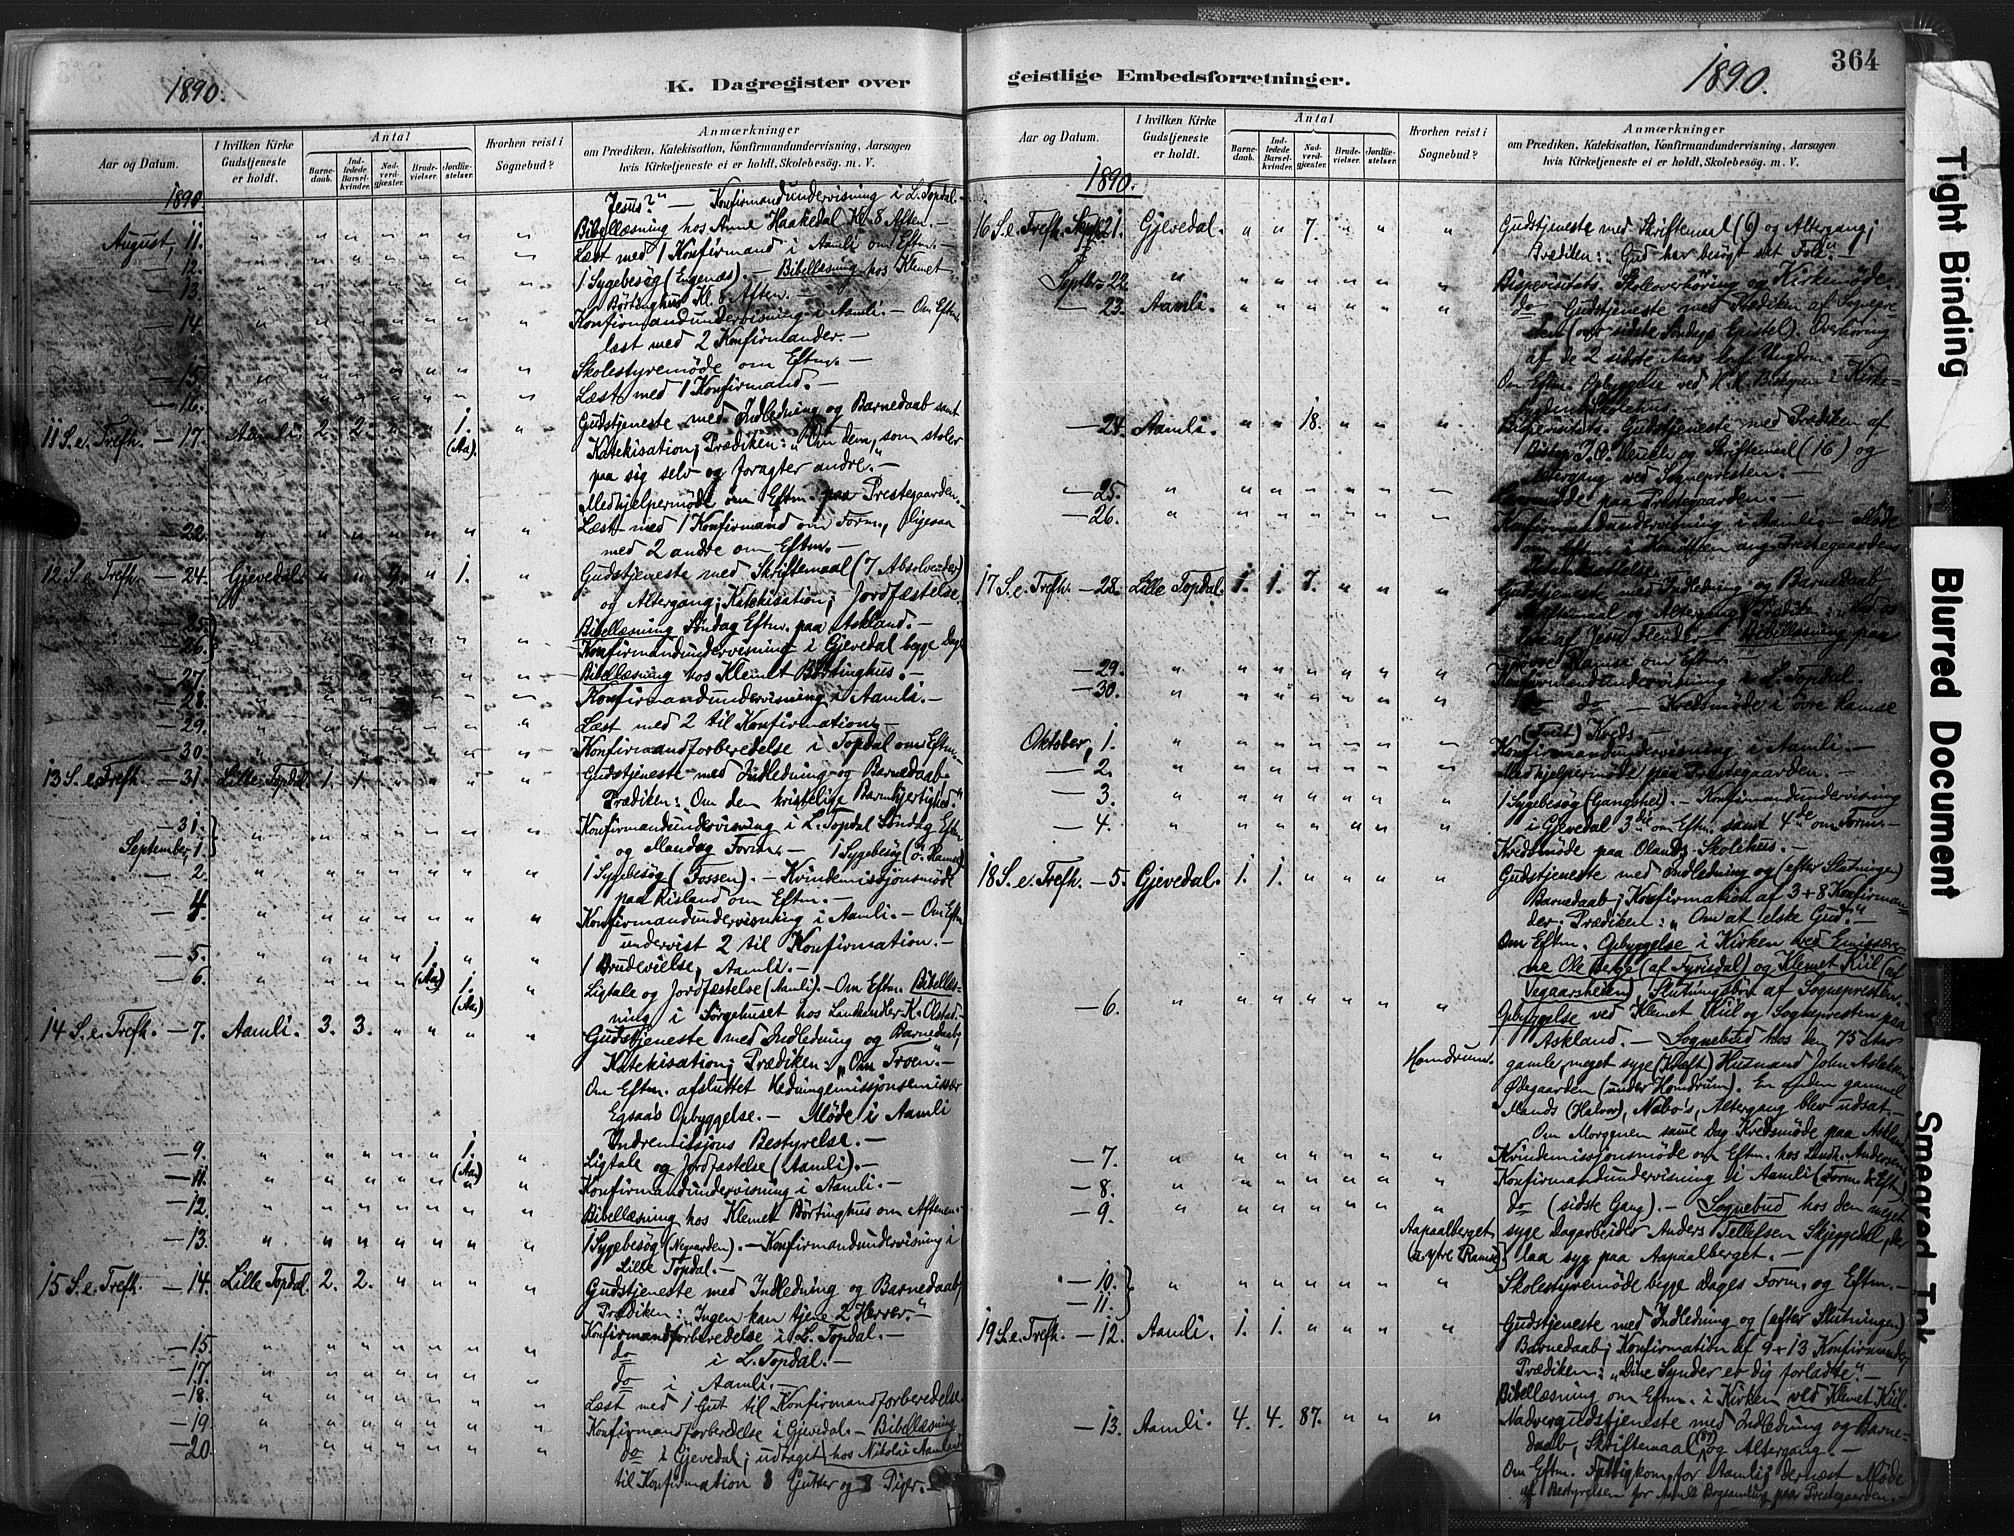 1890.
K. Dagregister over
Aar og Datum.
I hvilken Kirke Gudstjeneste er holdt.
Antal
Barne-daab.
Ind-ledede Barsel-kvinder.
Nad-verd-gjæster.
Brude-vielser.
Jordfæ-stelser.
Hvorhen reist i Sognebud?
Anmærkninger
om Prædiken, Katekisation, Konfirmandundervisning, Aarsagen
hvis Kirketjeneste ei er holdt, Skolebesøg. m. V.
1890
Jesus?" — Konfirmandundervisning i L. Topdal.
August, 11. Bibellæsning hos Anne Haakedal Kl. 8 Aften. —
— 12. Læst med 1 Konfirmand i Aamli om Eftm. —
— 13. 1 Sygebesøg (Engenæs). — Bibellæsning hos Klemet
Børtinghus Kl. 8 Aften. —
— 14. Konfirmandundervisning i Aamli. — Om Eftm.
læst med 2 Konfirmander. —
— 15. Skolestyremøde om Eftm. —
— 16. Læst med 1 Konfirmand. —
11 S. e. Trefh. — 17. Aamli. 2. 2. " " 1. (Aa). Gudstjeneste med Indledning og Barnedaab samt
Katekisation; Prædiken: "Om dem, som stoler
paa sig selv og foragter andre." —
Medhjelpermøde om Eftm. paa Prestegaarden. —
— 22. Læst med 1 Konfirmand om Form., ligesaa
med 2 andre om Eftm. —
12 S. e. Trefh. — 24. Gjevedal. " " " 1. Gudstjeneste med Skriftemaal (7 Absolvender)
og Altergang; Katekisation; Jordfæstelse.
Bibellæsning Søndag Eftm. paa Askland. —
25.
— 26. Konfirmandundervisning i Gjevedal begge Dage
— 27. Bibellæsning hos Klemet Børtinghus. —
— 28. Konfirmandundervisning i Aamli. —
— 29. Læst med 2 til Konfirmation. —
— 30. Konfirmandforberedelse i Topdal om Eftm. —
13 S. e. Trefh. — 31. Lille Topdal. 1. 1. Gudstjeneste med Indledning og Barnedaab.
Prædiken: "Om den kristelige Barmhjertighed."
— 31.
September, 1. Konfirmandundervisning i L. Topdal Søndag Eftm.
og Mandag Form. — 1 Sygebesøg (ø. Ramse)
— 2. 1 Sygebesøg (Fossen). — Kvindemissjonsmøde
paa Risland om Eftm. —
— 4. Konfirmandundervisning i Aamli. — Om Eftm.
undervist 2 til Konfirmation. —
— 5. 1. (Aa) 1 Brudevielse, Aamli. —
— 6. 1. (Aa) Ligtale og Jordfæstelse (Aamli). — Om Eftm. Bibellæs-
ning i Sørgehuset hos Landhandler K. Olstad. —
14 S. e. Trefh. — 7. Aamli. 3. 3. Gudstjeneste med Indledning og Barnedaab,
Katekisation; Prædiken: "Om Troen." —
Om Eftm. afsluttet Hedningemissjonsemissær
Egsaa's Opbyggelse. — Møde i Aamli
Indremissjons Bestyrelse. —
— 9. 1. (Aa) Ligtale og Jordfæstelse (Aamli). —
— 11. Konfirmandundervisning i Aamli. —
— 12. Bibellæsning hos Klemet Børtinghus om Aftenen. —
— 13. 1 Sygebesøg (Negaarden). — Konfirmandundervisning i
Lille Topdal. —
15 S. e. Trefh. — 14. Lille Topdal. 2. 2. Gudstjeneste med Indledning og Barnedaab;
Prædiken: "Ingen kan tjene 2 Herrer."
— 15. Konfirmandforberedelse i L. Topdal. —
— 17. do i L. Topdal. —
— 18. do i Aamli. —
Læst med 1 Gut til Konfirmandforberedelse
— 19. Konfirmandforberedelse i Gjevedal. — Bibellæsning
— 20. do i Gjevedal; udtaget hos Nikolai Aamland
til Konfirmation 3 Gutter og 8 Piger. —
364
geistlige Embedsforretninger.
1890.
Aar og Datum.
I hvilken Kirke Gudstjeneste er holdt.
Antal
Barne-daab.
Ind-ledede Barsel-kvinder.
Nad-verd-gjæster.
Brude-vielser.
Jordfæ-stelser.
Hvorhen reist i Sognebud?
Anmærkninger
om Prædiken, Katekisation, Konfirmandundervisning, Aarsagen
hvis Kirketjeneste ei er holdt, Skolebesøg. m. V.
1890.
16 S. e. Trefh. 21. Gjevedal. " " 7. Gudstjeneste med Skriftemaal (6) og Altergang;
Prædiken: "Gud har besøgt sit Folk."
Septbr. — 22. Bispevisitats. Skoleoverhøring og Kirkemøde.
— 23. Aamli. do Gudstjeneste med Prædiken af Sognepre
sten (over sidste Søndags Epistel). Overhøring
af de 2 sidste Aars konf. Ungdom. —
Om Eftm. Opbyggelse ved H. H. Bispen i Kirke-
Skolehus. —
— 24. Aamli. " " 18. Bispevisitats. Gudstjeneste med Prædiken af
Biskop J. C. Heuch og Skriftemaal (16) og
Altergang ved Sognepresten. —
— 25. paa Prestegaarden. —
— 26. Konfirmandundervisning i Aamli. — Møde
om Eftm. i Komiteen ang. Prestegaardens
17 S. e. Trefh. — 28. Lille Topdal. 1. 1. 7. Gudstjeneste med Indledning og Barnedaab,
Skriftemaal og Altergang
af Jesu Fiender. Bibellæsning paa
øvre Ramse om Eftm. —
— 29. Konfirmandundervisning i L. Topdal.
— 30. do do — Kredsmøde i øvre Ramse
Kreds. —
Oktober, 1. Konfirmandundervisning i Aamli. —
— 2. Medhjelpermøde paa Prestegaarden. —
— 3. 1 Sygebesøg (Gangshei). — Konfirmandundervisning
— 4. i Gjevedal 3die om Eftm. samt 4de om Form. —
Kredsmøde paa Olands Skolehus. —
18 S. e. Trefh. — 5. Gjevedal. 1. 1. Gudstjeneste med Indledning og (efter Slutningen)
Barnedaab; Konfirmation af 3 + 8 Konfirman-
der; Prædiken: "Om at elske Gud." —
Om Eftm. Opbyggelse i Kirken ved Emissære-
ne Ole Berge (af Fyrisdal) og Klemet Kiil (af
Vegaarsheien). Slutningsbøn af Sognepresten. —
— 6. Opbyggelse ved Klemet Kiil og Sognepresten paa
Askland. — Sognebud hos den 75 Aar
Homdrum. gamle, meget syge (Kræft) Husmand John Aslaksen
Ødegaarden (under Homdrum). En anden gammel
Mands (Halvor), Nabo's, Altergang blev udsat. —
Om Morgenen samme Dag Kredsmøde paa Askland
— 7. Kvindemissjonsmøde om Eftm. hos Landh. Andersen.
— 8. Konfirmandundervisning i Aamli (Form. & Eftm.)
— 9. do (sidste Gang). — Sognebud hos den meget
Aapaalberget syge Dagarbeider Anders Tellefsen Skjeggedal, der
(i ytre Ramse). laa syg paa Aapaalberget. —
— 10.
— 11. Skolestyremøde begge Dages Form. og Eftm. —
19 S. e. Trefh. — 12. Aamli. 1. 1. Gudstjeneste med Indledning og (efter Slutningen)
Barnedaab; Konfirmation af 9 + 13 Konfirmander,
Prædiken: "Dine Synder er dig forladte." —
Bibellæsning om Eftm. i Kirken ved Klemet Kiil.
— 13. Aamli. 4. 4. 87. Nadvergudstjeneste med Indledning og Barne-
daab, Skriftemaal og Altergang. —
Om Eftm. Fattigkom. for Aamli; dernæst Møde
af Bestyrelsen for Aamli Bogsamling paa Prestegaarden. —
Tight Binding
Blurred Document
Smeared